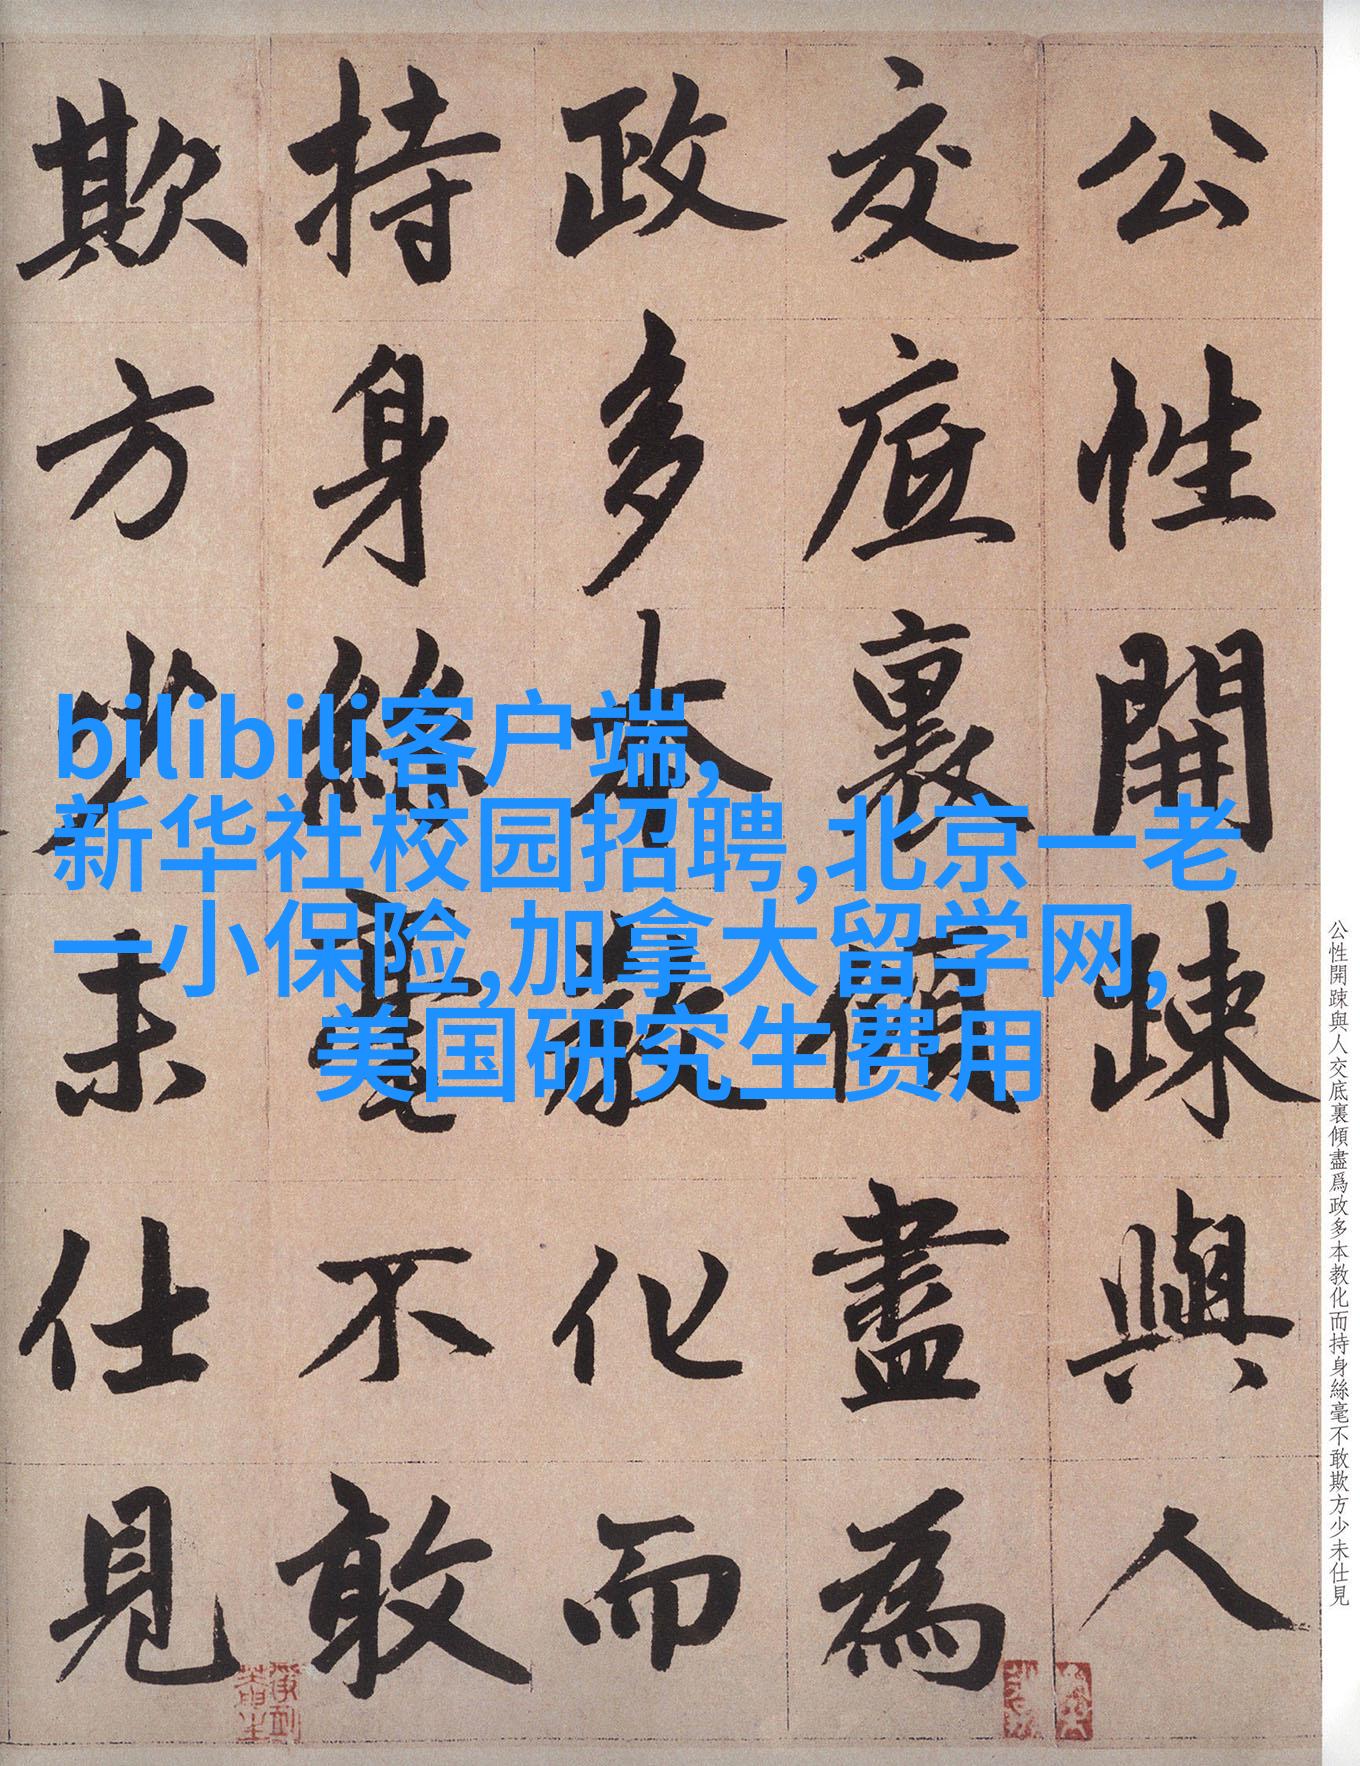 公性開踈與人
交底裏傾盡為
政多本教化而
持身絲毫不敢
欺方少未仕見
bilibili客户端,
新华社校园招聘,北京一老
一小保险,加拿大留学网,
美国研究生费用
公性開踈與人交底裏傾盡爲政多本教化而持身絲毫不敢欺方少未仕見